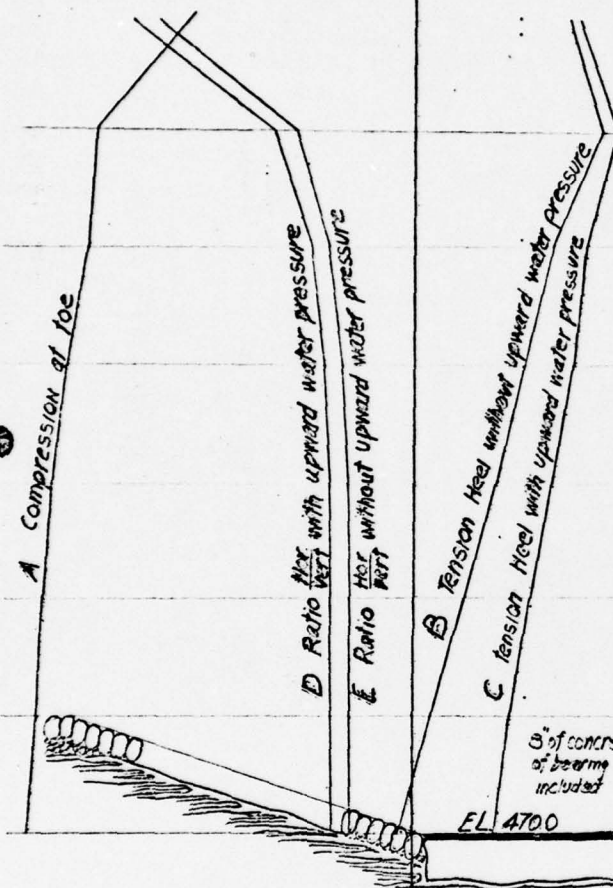 A Compression at toe
D Ratio Hor/Vert with upward water pressure
E Ratio Hor/Vert without upward water pressure
B Tension Heel without upward water pressure
C Tension Heel with upward water pressure
of bearing
included
EL. 470.0